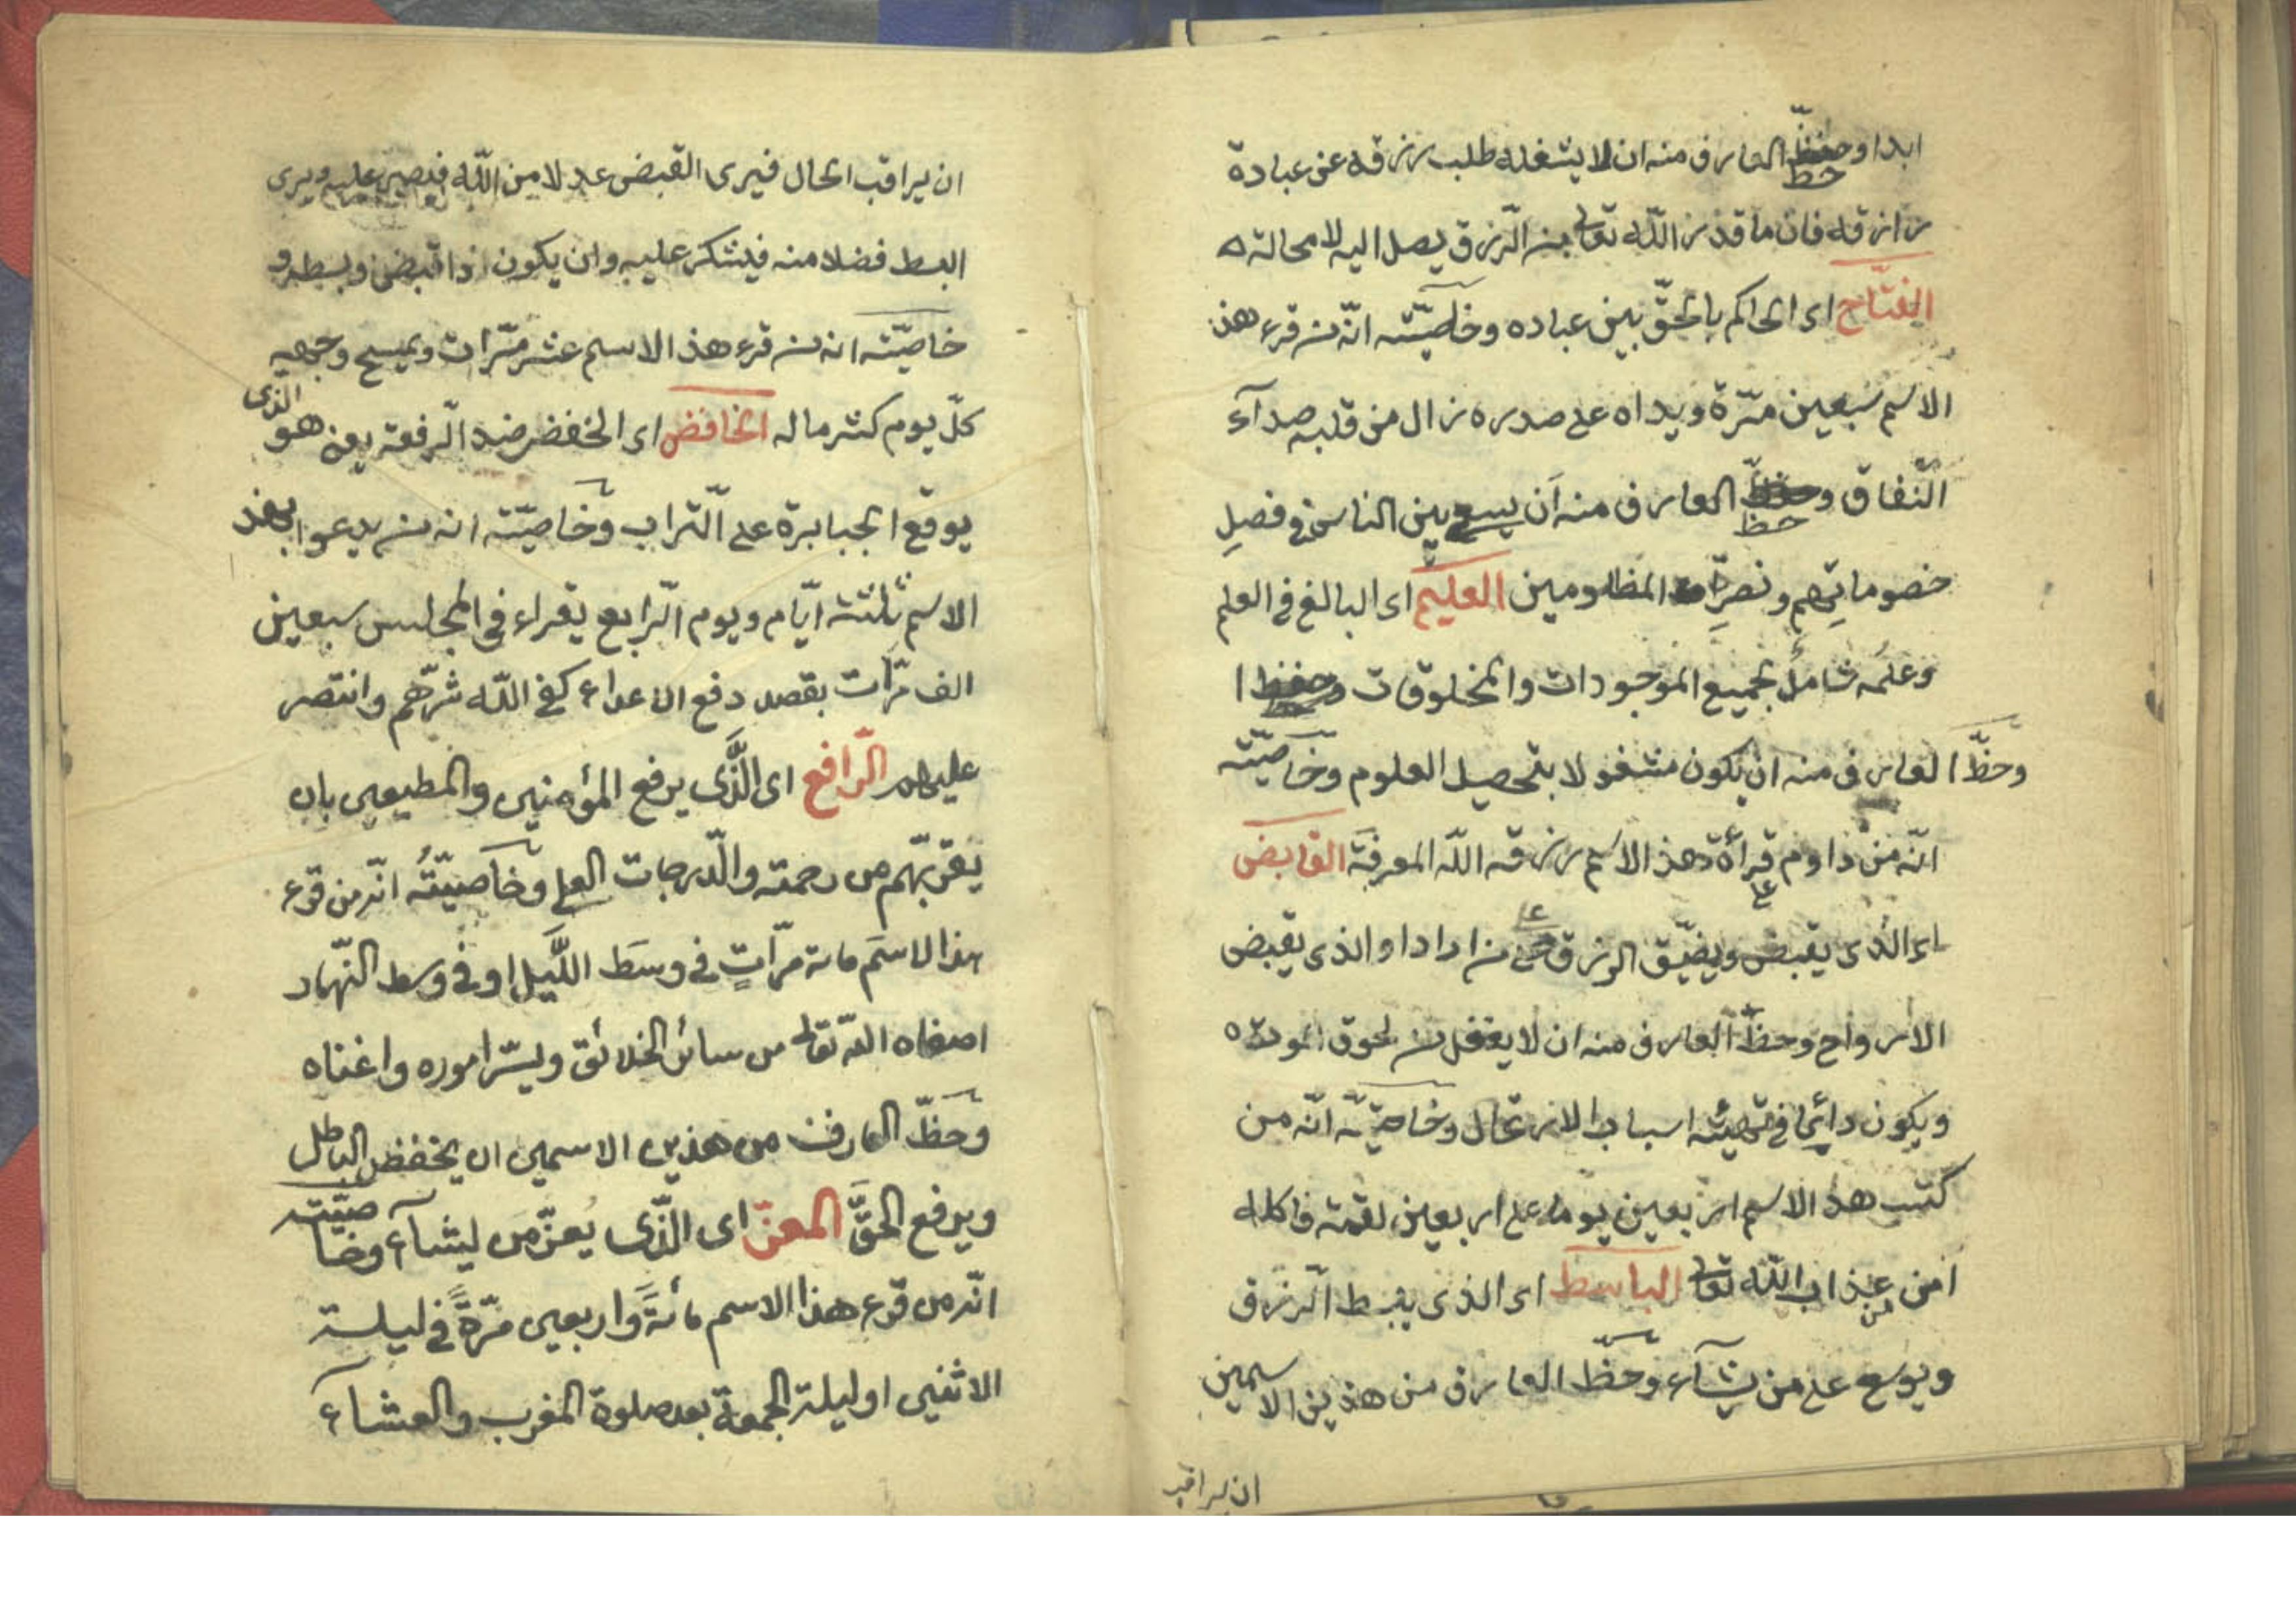 ابدا وحظ العارف منه ان لا يشغله طلب رزقه عن عبادة
رازقه فان ما قدر الله تعالى من الرزق يصل اليه لا محالة ه
الفتّاح اى الحاكم بالحقّ بين عباده وخاصيّته انّه من قرء هذ
الاسم سبعين مرّة ويداه على صدره زال من قلبه صدآء
النّفاق وحظ العارف منه اَن يسعى بين الناس فى فصلِ
خصوماتِهم ونصرِة المظلومين العليم اى البالغ فى العلم
وعلمُه شاملُ لجميع الموجودات والمخلوقات
وحظّ العارف منه ان يكون مشغولا بتحصيل العلوم وخاصيّته
انّه من داوم على قرأة هذ الاسم رزقه اللّه المعرفة القابض
اى الذى يقبض ويضيّق الرزق على من اراد او الذى يقبض
الارواح وحظّ العارف منه ان لا يغفل من لحوق الموت ه
ويكون دائما فى تهيئه اسباب الارتحال وخاصيّته انّه من
كتب هذ الاسم اربعين يوما على اربعين لقمة فاكله
امن من عذاب اللّه تعالى الباسط اى الذى يبسط الرّزق
ويوسع على من يشآء وحظّ العارف من هذين الاسمين
ان يراقب
ان يراقب الحال فيرى القبض عدلا من اللّه فيصبر عليه ويرى
البسط فضلا منه فيشكر عليه وان يكون ذا قبض وبسط و
خاصيّته انه من قرء هذ الاسم عشر مرّات ويمسح وجهه
كلّ يوم كثر ماله الخافض اى الخفض ضد الرّفعة يعنى هو الذى
يوقع الجبابرة على التّراب وخاصيّته انه من يدعوا بهذ
الاسم ثلثة ايّام ويوم الرّابع يقراء فى المجلس سبعين
الف مرّات بقصد دفع الاعداء كفى اللّه شرّهم وانتصر
عليهم الرّافع اى الَّذى يرفع المؤمنين والمطيعين بان
يقرّبهم من رحمته والدّرجات العلى وخاصيّتُه انّه من قرء
هذا الاسَم مائة مرّاتٍ فى وسَط اللَّيل او فى وسط النّهار
اصفاه اللّه تعالى من سائر الخلائق ويسّر اموره واغناه
وحظّ العارف من هذين الاسمين ان يخفض الباطل
ويرفع الحقَّ المعزّ اى الّذى يُعزّ من يشآء وخاصيّته
انّه من قرء هذا الاسم مائةً واربعين مرّةً فى ليلة
الاثنين او ليلة الجمعة بعد صلوة المغرب والعشآء